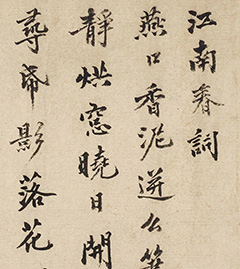 江南春詞
燕口香泥迸幺筍
靜烘窓曉日開
尋帘影落花